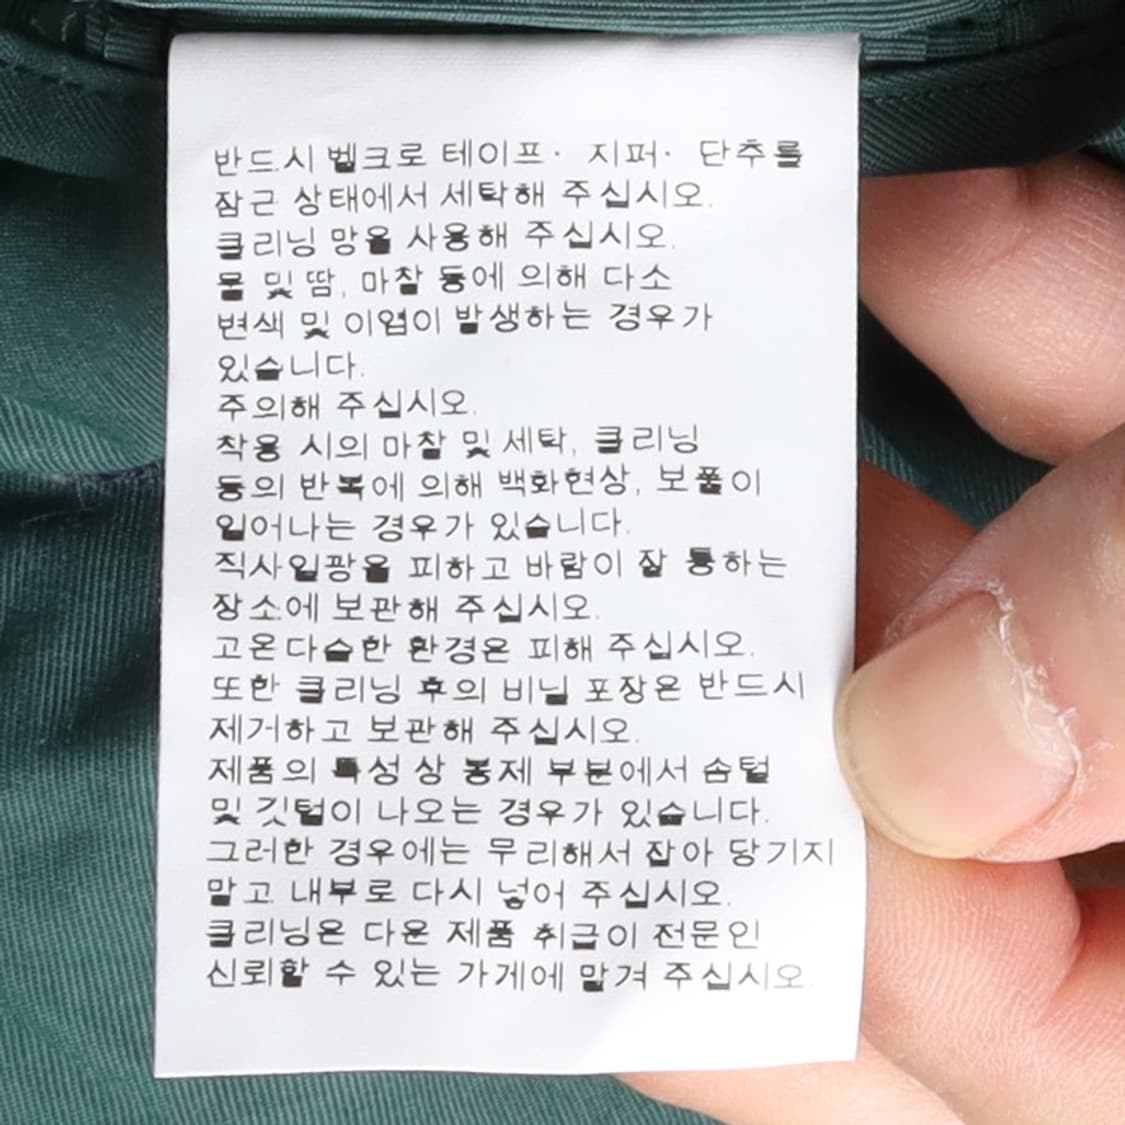 반드시 벨크로 테이프· 지퍼· 단추를
잠근 상태에서 세탁해 주십시오.
클리닝 망을 사용해 주십시오.
물 및 땀, 마찰 등에 의해 다소
변색 및 이염이 발생하는 경우가
있습니다.
주의해 주십시오.
착용 시의 마찰 및 세탁, 클리닝
등의 반복에 의해 백화현상, 보풀이
일어나는 경우가 있습니다.
직사일광을 피하고 바람이 잘 통하는
장소에 보관해 주십시오.
고온다습한 환경은 피해 주십시오.
또한 클리닝 후의 비닐 포장은 반드시
제거하고 보관해 주십시오.
제품의 특성상 봉제 부분에서 솜털
및 깃털이 나오는 경우가 있습니다.
그러한 경우에는 무리해서 잡아 당기지
말고 내부로 다시 넣어 주십시오.
클리닝은 다운 제품 취급이 전문인
신뢰할 수 있는 가게에 맡겨 주십시오.